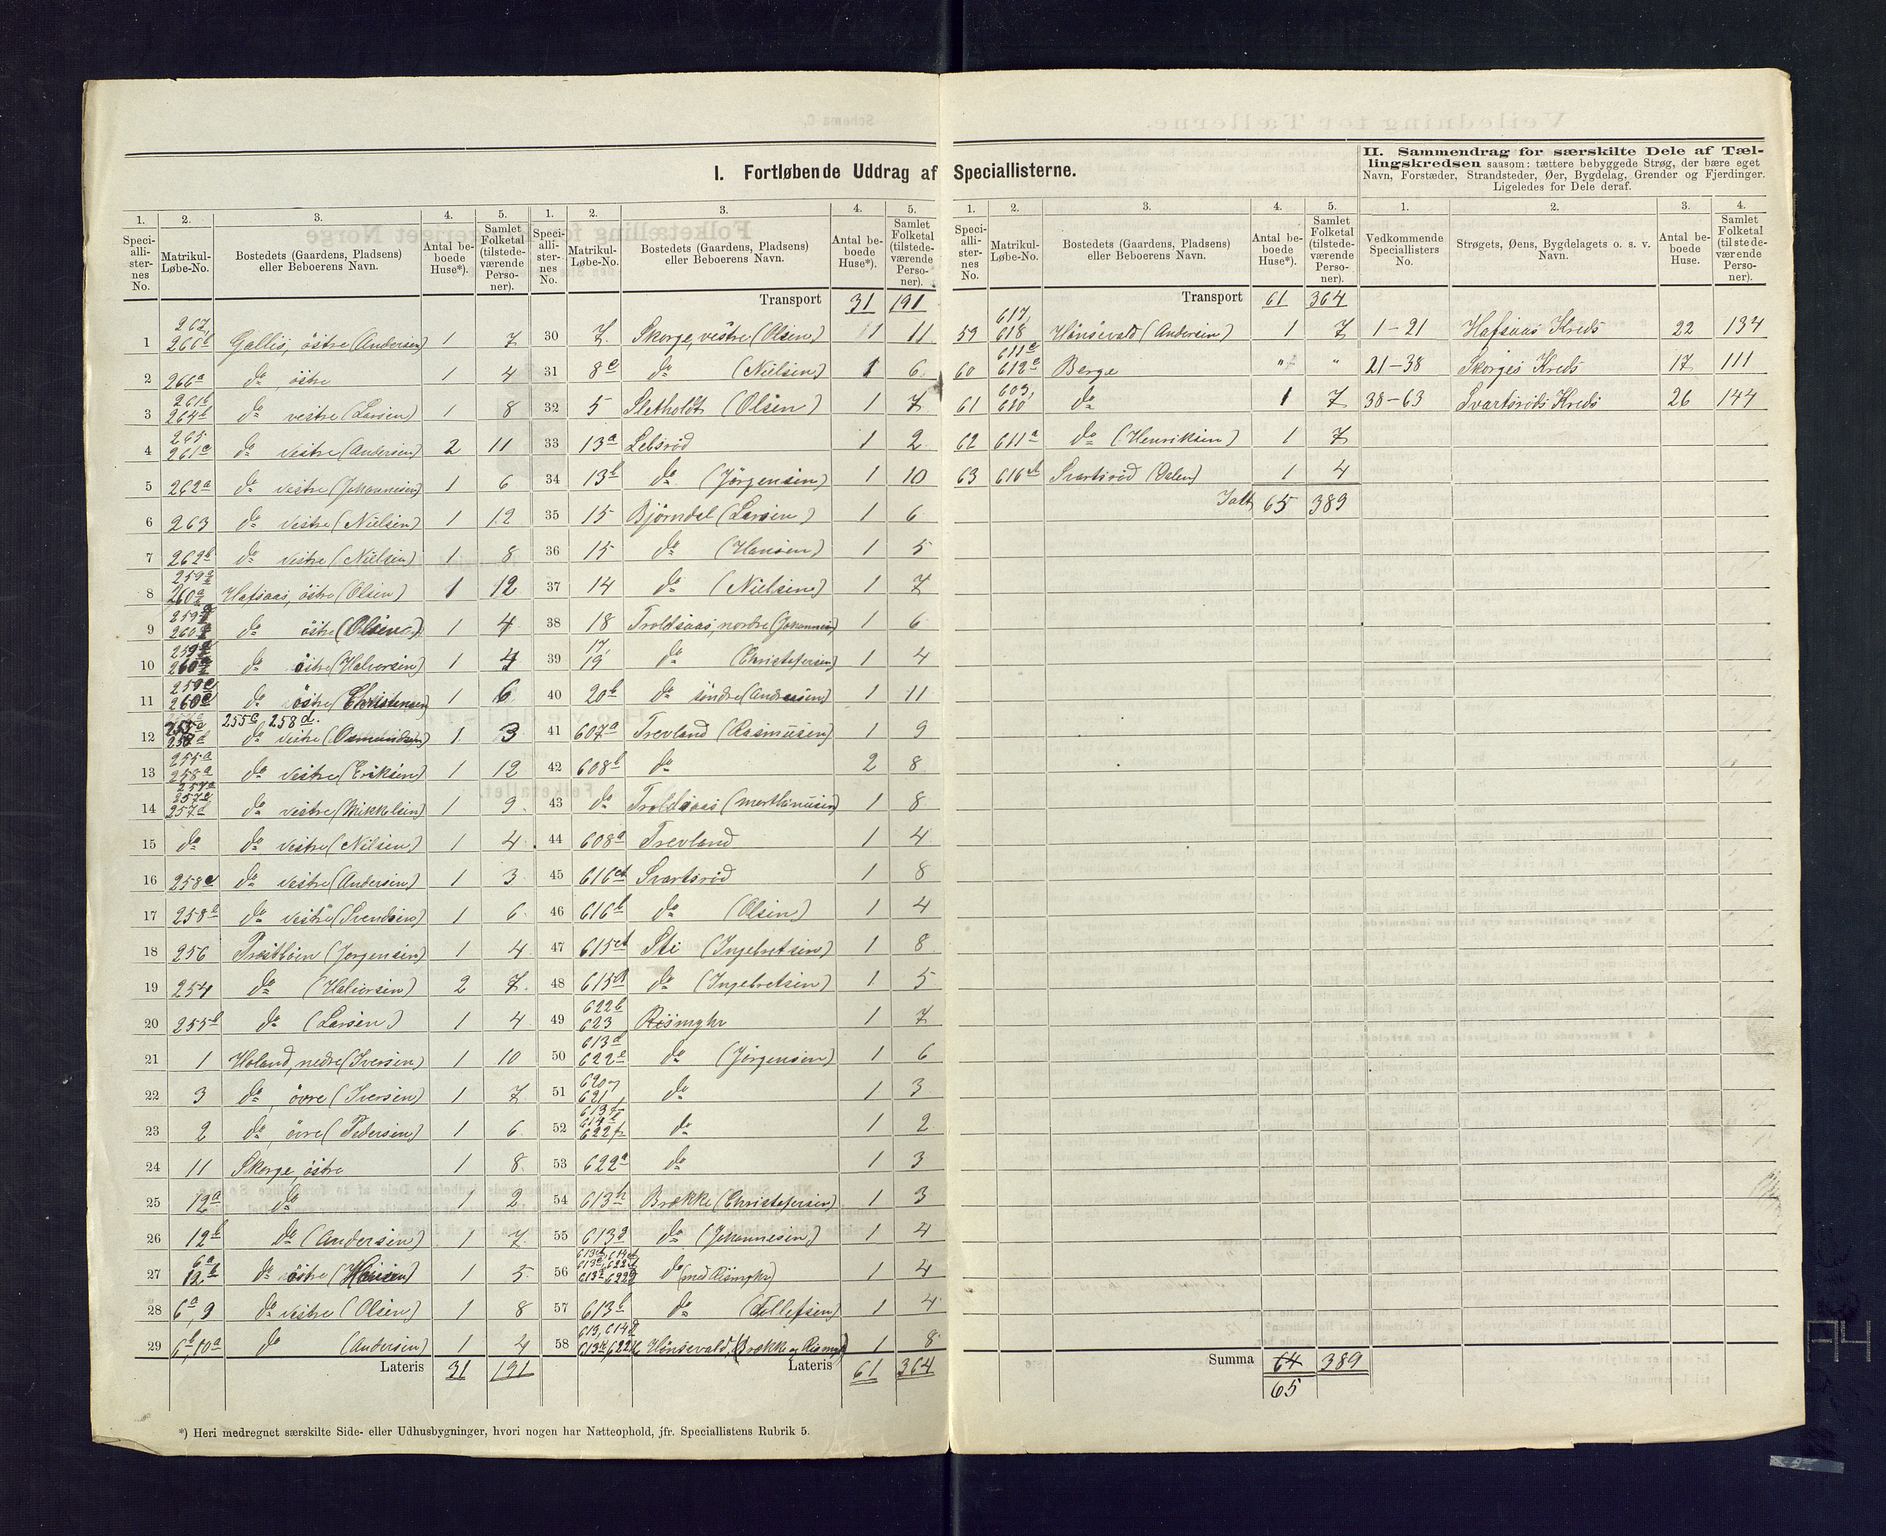 I. Fortløbende Uddrag af Speciallisterne.
II. Sammendrag for særskilte Dele af Tæl-
lingskredsen saasom: tættere bebyggede Strøg, der bære eget
Navn, Forstæder, Strandsteder, Øer, Bygdelag, Grender og Fjerdinger.
Ligeledes for Dele deraf.
1. 2. 3. 4. 5.
Speciallisternes No. Matrikul-Løbe-No. Bostedets (Gaardens, Pladsens) eller Beboerens Navn. Antal beboede Huse*). Samlet Folketal (tilstedeværende Personer).
1 267, 266b Gallis, östre (Andersen) 1 7
2 266a do, östre 1 4
3 261b 264b do vestre (Larsen) 1 8
4 265 261c do vestre (Andersen) 2 11
5 262a do vestre (Johannesen) 1 6
6 263 do vestre (Nielsen) 1 12
7 262b do vestre (Nielsen) 1 8
8 Hafsaas, östre (Olsen) 1 12
9 do östre (Olsen) 1 4
10 do östre (Halvorsen) 1 4
11 259c 260c do östre (Christensen) 1 6
12 255c 258d. do vestre (Osmundsen) 1 3
13 255a 258a do vestre (Eriksen) 1 12
14 257d do vestre (Mikkelsen) 1 9
15 do do vestre (Nilsen) 1 4
16 258c do vestre (Andersen) 1 3
17 258b do vestre (Svendsen) 1 6
18 256 (Jørgensen) 1 4
19 254 do (Halvorsen) 2 7
20 255b do (Larsen) 1 4
21 1 Holand, nedre (Iversen) 1 10
22 3 do, övre (Iversen) 1 7
23 2 do, övre (Pedersen) 1 6
24 11 Skorge, östre 1 8
25 12a do 1 2
26 12b do (Andersen) 1 7
27 6a 12b do östre (Hansen) 1 5
28 6a, 9 do vestre (Olsen) 1 8
29 6b, 10a do (Andersen) 1 4
Lateris 31 191
1. 2. 3. 4. 5.
Speciallisternes No. Matrikul-Løbe-No. Bostedets (Gaardens, Pladsens) eller Beboerens Navn. Antal beboede Huse*). Samlet Folketal (tilstedeværende Personer).
Transport 31 191
30 7. Skorge, vestre (Olsen) 1 11
31 8c do (Nielsen) 1 6
32 5 Sletholdt (Olsen) 1 7
33 13a Lebsröd 1 2
34 13b do (Jørgensen) 1 10
35 15 Bjørndal (Larsen) 1 6
36 15 do (Hansen) 1 5
37 14 do (Nielsen) 1 7
38 18 Troldsaas, nordre (Johannesen) 1 6
39 17, 19 do (Christofersen) 1 4
40 20b do söndre (Andreasen) 1 11
41 607a Trevland (Rasmusen) 1 9
42 608b do 2 8
43 do Troldsaas (Marthinusen) 1 8
44 608a Trevland 1 4
45 616 Svartsröd 1 8
46 616b do (Olsen) 1 4
47 615 Sti (Ingebretsen) 1 8
48 615 do (Ingebretsen) 1 5
49 622b 623 Rismyhr 1 7
50 613d 622e do (Jørgensen) 1 6
51 620, 621, do 1 3
52 622f do 1 2
53 622a do 1 3
54 613h Brække (Christofersen) 1 3
55 613g do (Johannesen) 1 4
56 do (med Rismyhr) 1 4
57 613b do (Tellefsen) 1 4
58 Hönsevald, (Brække og Rismyr) 1 8
Lateris 61 364
1. 2. 3. 4. 5.
Speciallisternes No. Matrikul-Løbe-No. Bostedets (Gaardens, Pladsens) eller Beboerens Navn. Antal beboede Huse*). Samlet Folketal (tilstedeværende Personer).
Transport 61 364
59 617, 618 Hönsevald (Andersen) 1 7
60 611c 612c Berge " "
61 609, 610 do 1 7
62 611a do (Henriksen) 1 7
63 616 Svartsröd (Oalen) 1 4
Ialt 65 389
Summa 64 389
65
1. 2. 3. 4.
Vedkommende Speciallisters No. Strøgets, Øens, Bygdelagets o. s. v. Navn. Antal beboede Huse. Samlet Folketal (tilstedeværende Personer).
1-21 Hafsaas Kreds 22 134
21-38 Skorges Kreds 17 111
38-63 Svartsröds Kreds 26 144
*) Heri medregnet særskilte Side- eller Udhusbygninger, hvori nogen har Natteophold, jfr. Speciallistens Rubrik 5.